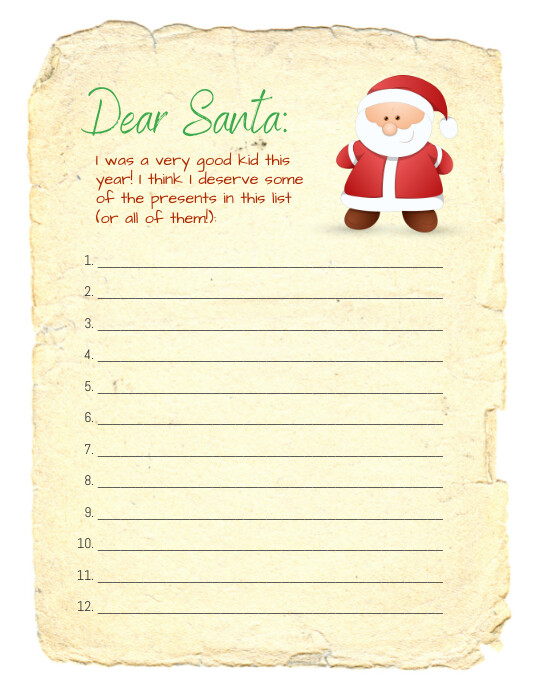 Dear Santa:
I was a very good kid this
year! I think I deserve some
of the presents in this list
(or all of them!):
1.
2.
3.
4.
5.
6.
7.
8.
9.
10.
11.
12.